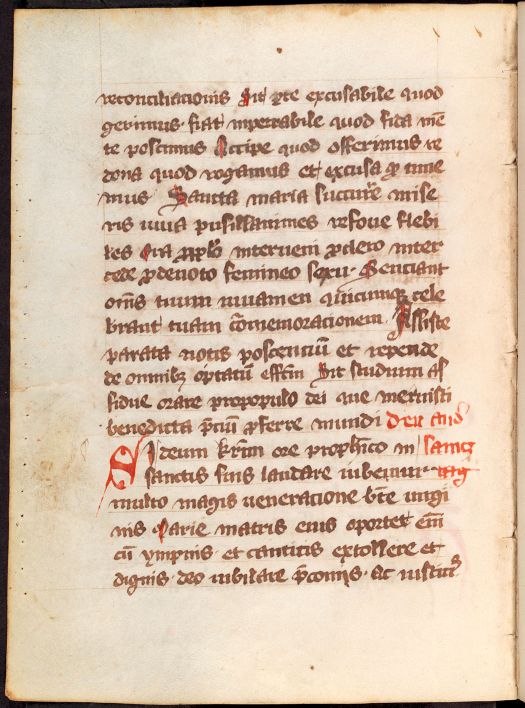 reconciliacionis Sit per te excusabile quod
gerimus. fiat impetrabile quod fida mēte
te poscimus Accipe quod offerimus re
dona quod rogamus et excusa qd time
mus Sancta maria succurre mise
ris iuua pusillanimes refoue flebi
les Ora pro pplo interueni pro clero inter
cede pro deuoto femineo sexu. Senciant
om̄s tuum iuuamen quicumqꝫ cele
brant tuam cōmemoracionem Assiste
parata uotis poscenciū et repende
de omnibꝫ optatū effcm̄ Sit studium as
sidue orare pro populo dei que meruisti
benedicta p̄ciū pferre mundi
Si deum krm̄ ore prophīco in sanct
sanctis suis laudare iubemur
multo magis ueneracione bt̄e uirgi
nis Marie matris eius oportet eum
cū ympnis et canticis extollere et
dignis deo iubilare p̄coniis. Ac